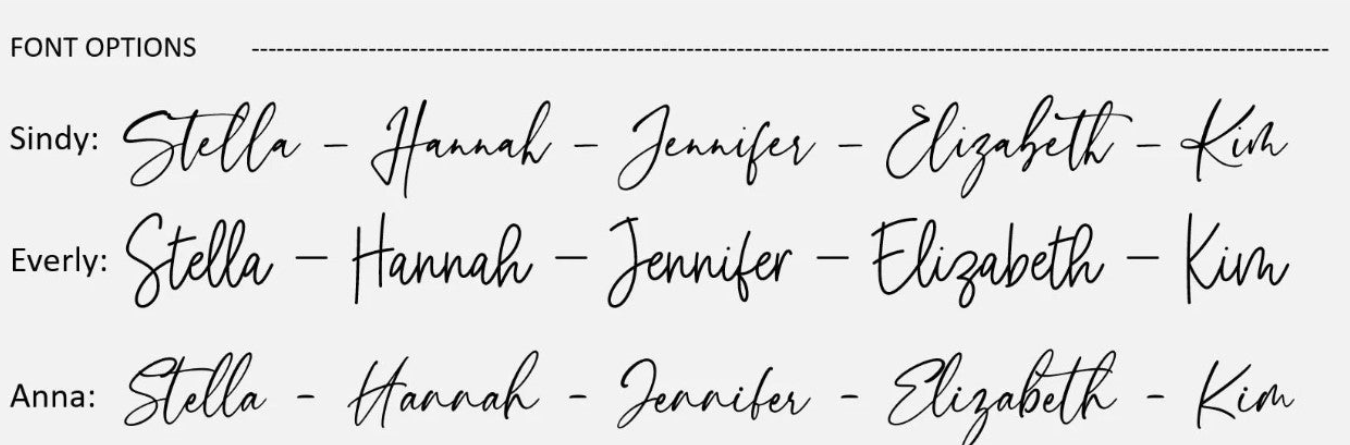 FONT OPTIONS --------------------------------------------------------------------------------
Sindy: Stella - Hannah - Jennifer - Elizabeth - Kim
Everly: Stella - Hannah - Jennifer - Elizabeth - Kim
Anna: Stella - Hannah - Jennifer - Elizabeth - Kim